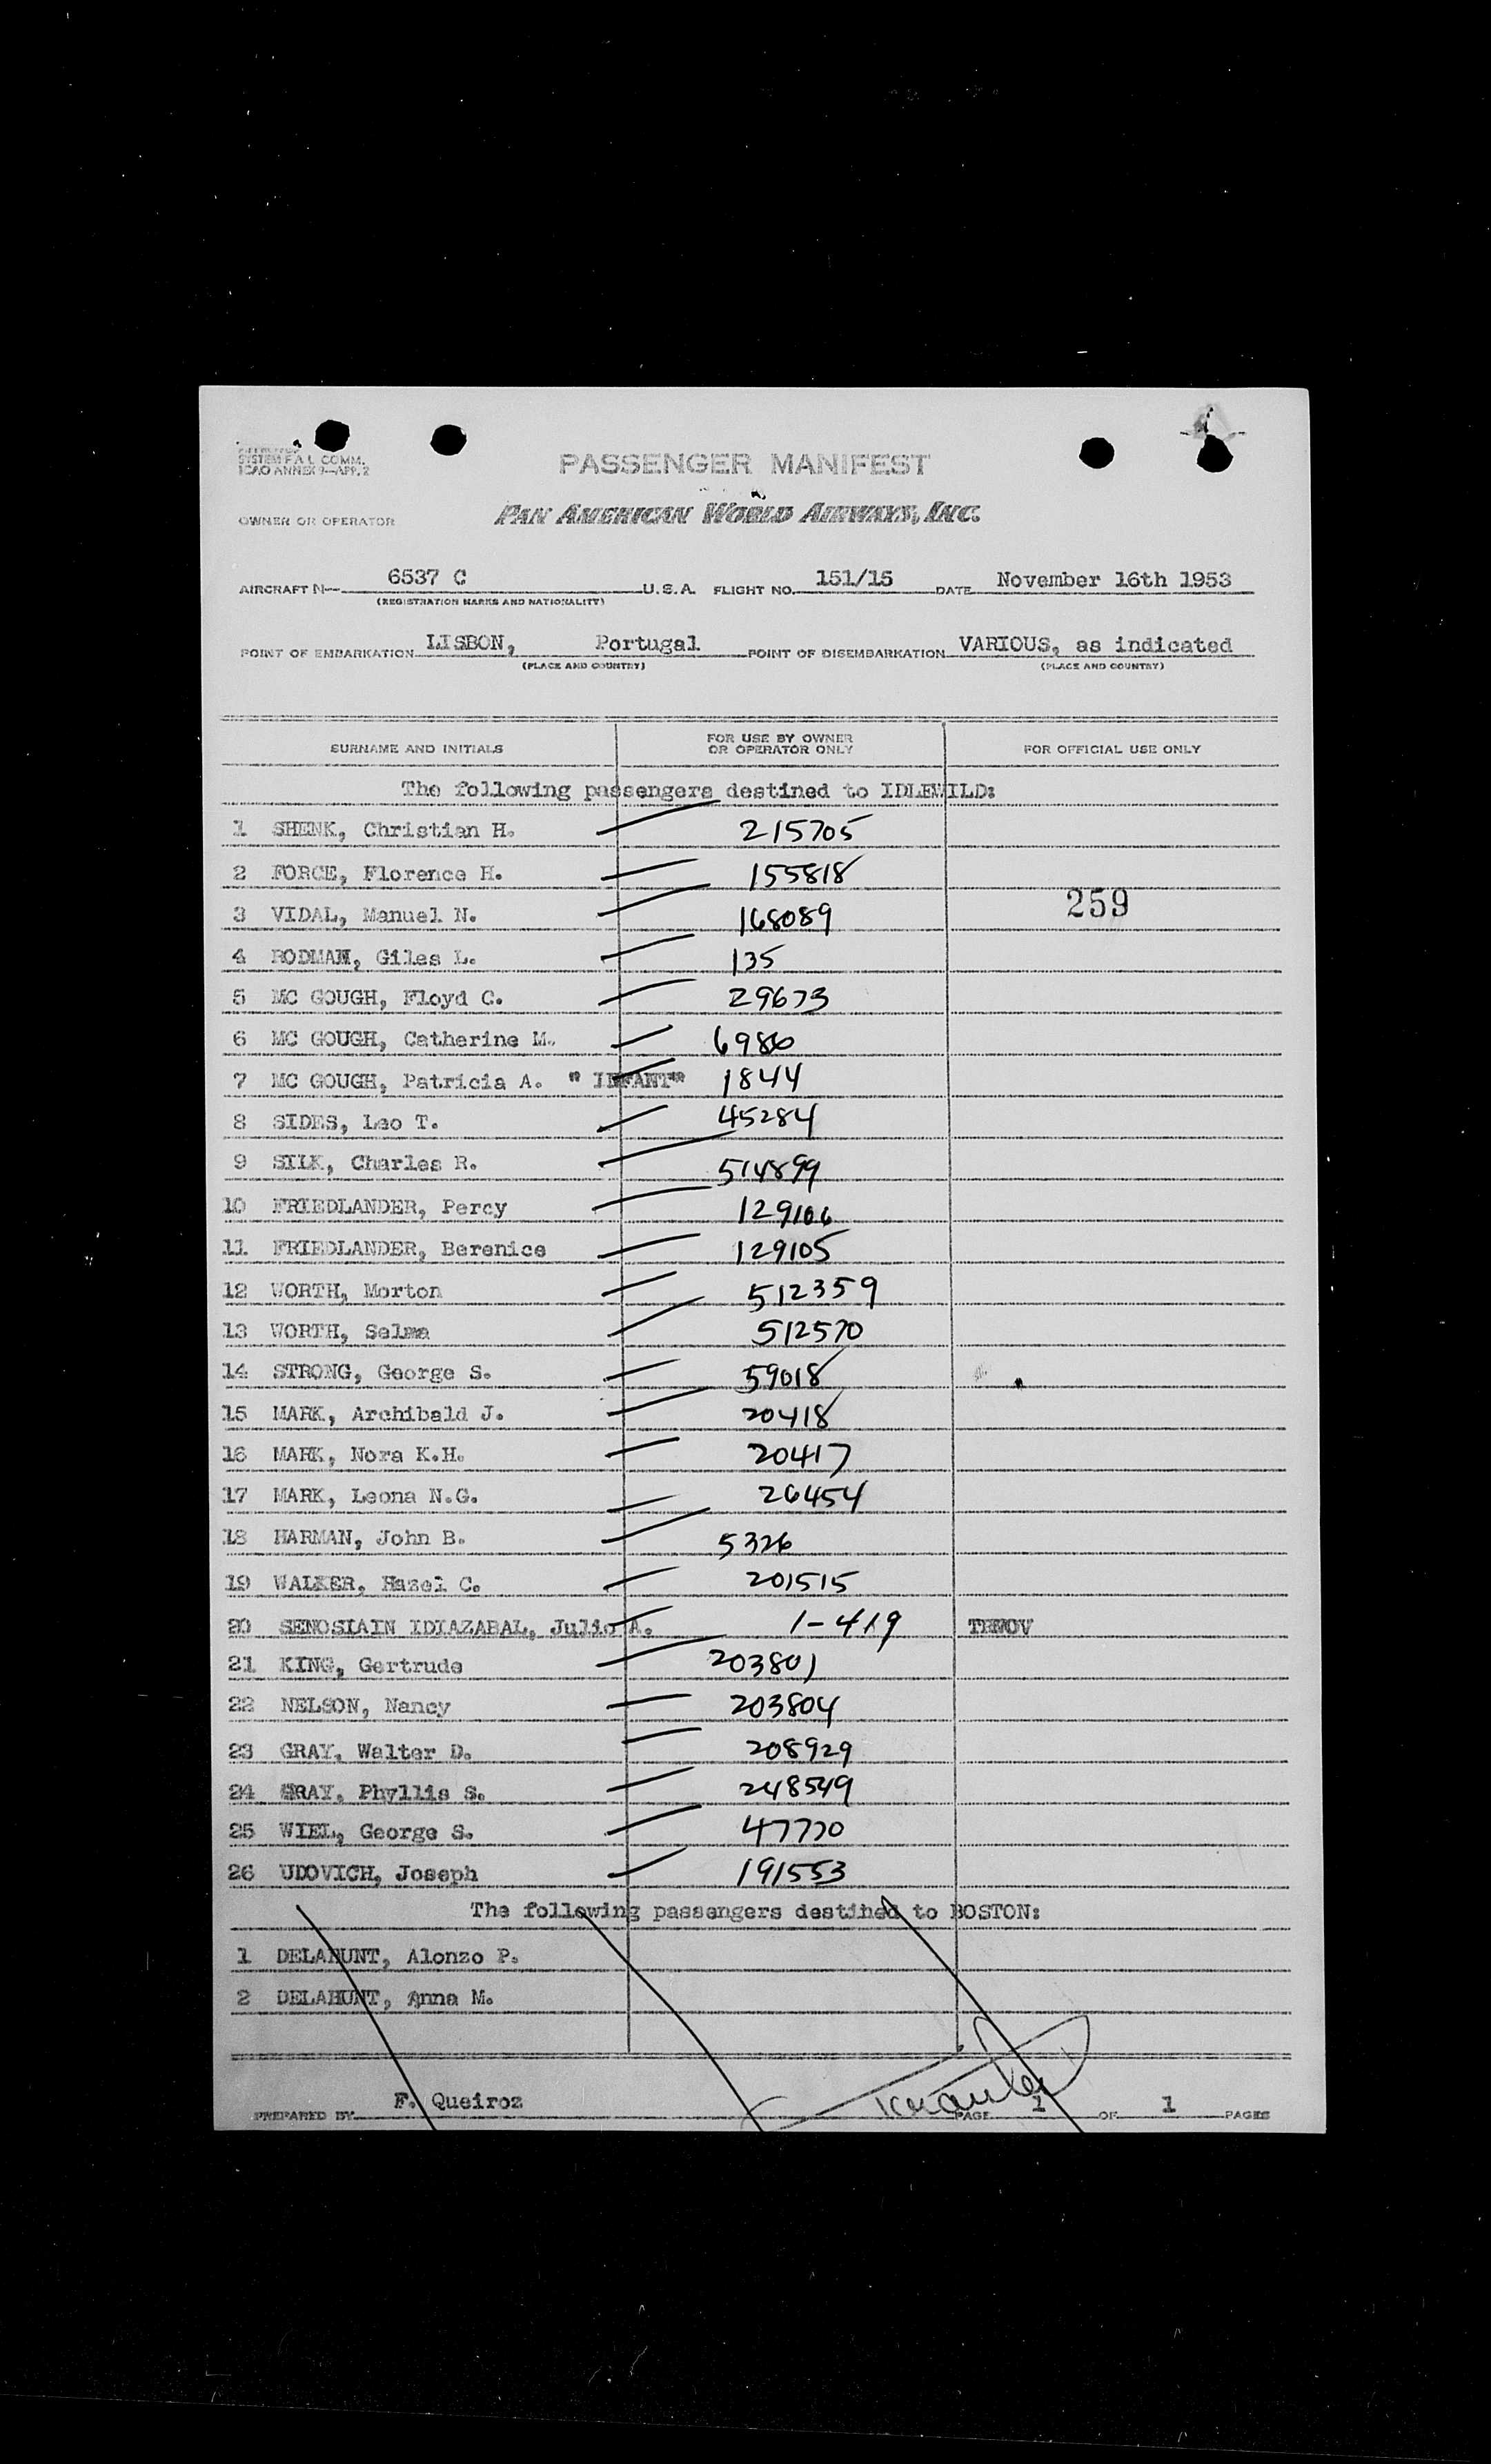 SYSTEM F.A.L. COMM.
ICAO ANNEX 9—APP. 2
PASSENGER MANIFEST
OWNER OR OPERATOR PAN AMERICAN WORLD AIRWAYS, INC.
AIRCRAFT N— 6537 C U.S.A. FLIGHT NO. 151/15 DATE November 16th 1953
(REGISTRATION MARKS AND NATIONALITY)
POINT OF EMBARKATION LISBON, Portugal POINT OF DISEMBARKATION VARIOUS, as indicated
(PLACE AND COUNTRY) (PLACE AND COUNTRY)
SURNAME AND INITIALS FOR USE BY OWNER OR OPERATOR ONLY FOR OFFICIAL USE ONLY
The following passengers destined to IDLEWILD:
1 SHENK, Christian H. 215705
2 FORCE, Florence H. 155818
259
3 VIDAL, Manuel N. 168089
4 RODMAN, Giles L. 135
5 MC GOUGH, Floyd C. 29673
6 MC GOUGH, Catherine M. 6986
7 MC GOUGH, Patricia A. "INFANT" 1844
8 SIDES, Leo T. 45284
9 SILK, Charles R. 514899
10 FRIEDLANDER, Percy 129106
11 FRIEDLANDER, Berenice 129105
12 WORTH, Morton 512359
13 WORTH, Selma 512570
14 STRONG, George S. 59018
15 MARK, Archibald J. 20418
16 MARK, Nora K.H. 20417
17 MARK, Leona N.G. 26454
18 HARMAN, John B. 5326
19 WALKER, Hazel C. 201515
20 SENOSIAIN IDIAZABAL, Julio A. 1-419
21 KING, Gertrude 203801
22 NELSON, Nancy 203804
23 GRAY, Walter D. 208929
24 GRAY, Phyllis S. 248549
25 WIEL, George S. 47770
26 UDOVICH, Joseph 191553
The following passengers destihed to BOSTON:
1 DELAHUNT, Alonzo P.
2 DELAHUNT, Anna M.
PREPARED BY F. Queiroz PAGE 1 OF 1 PAGES